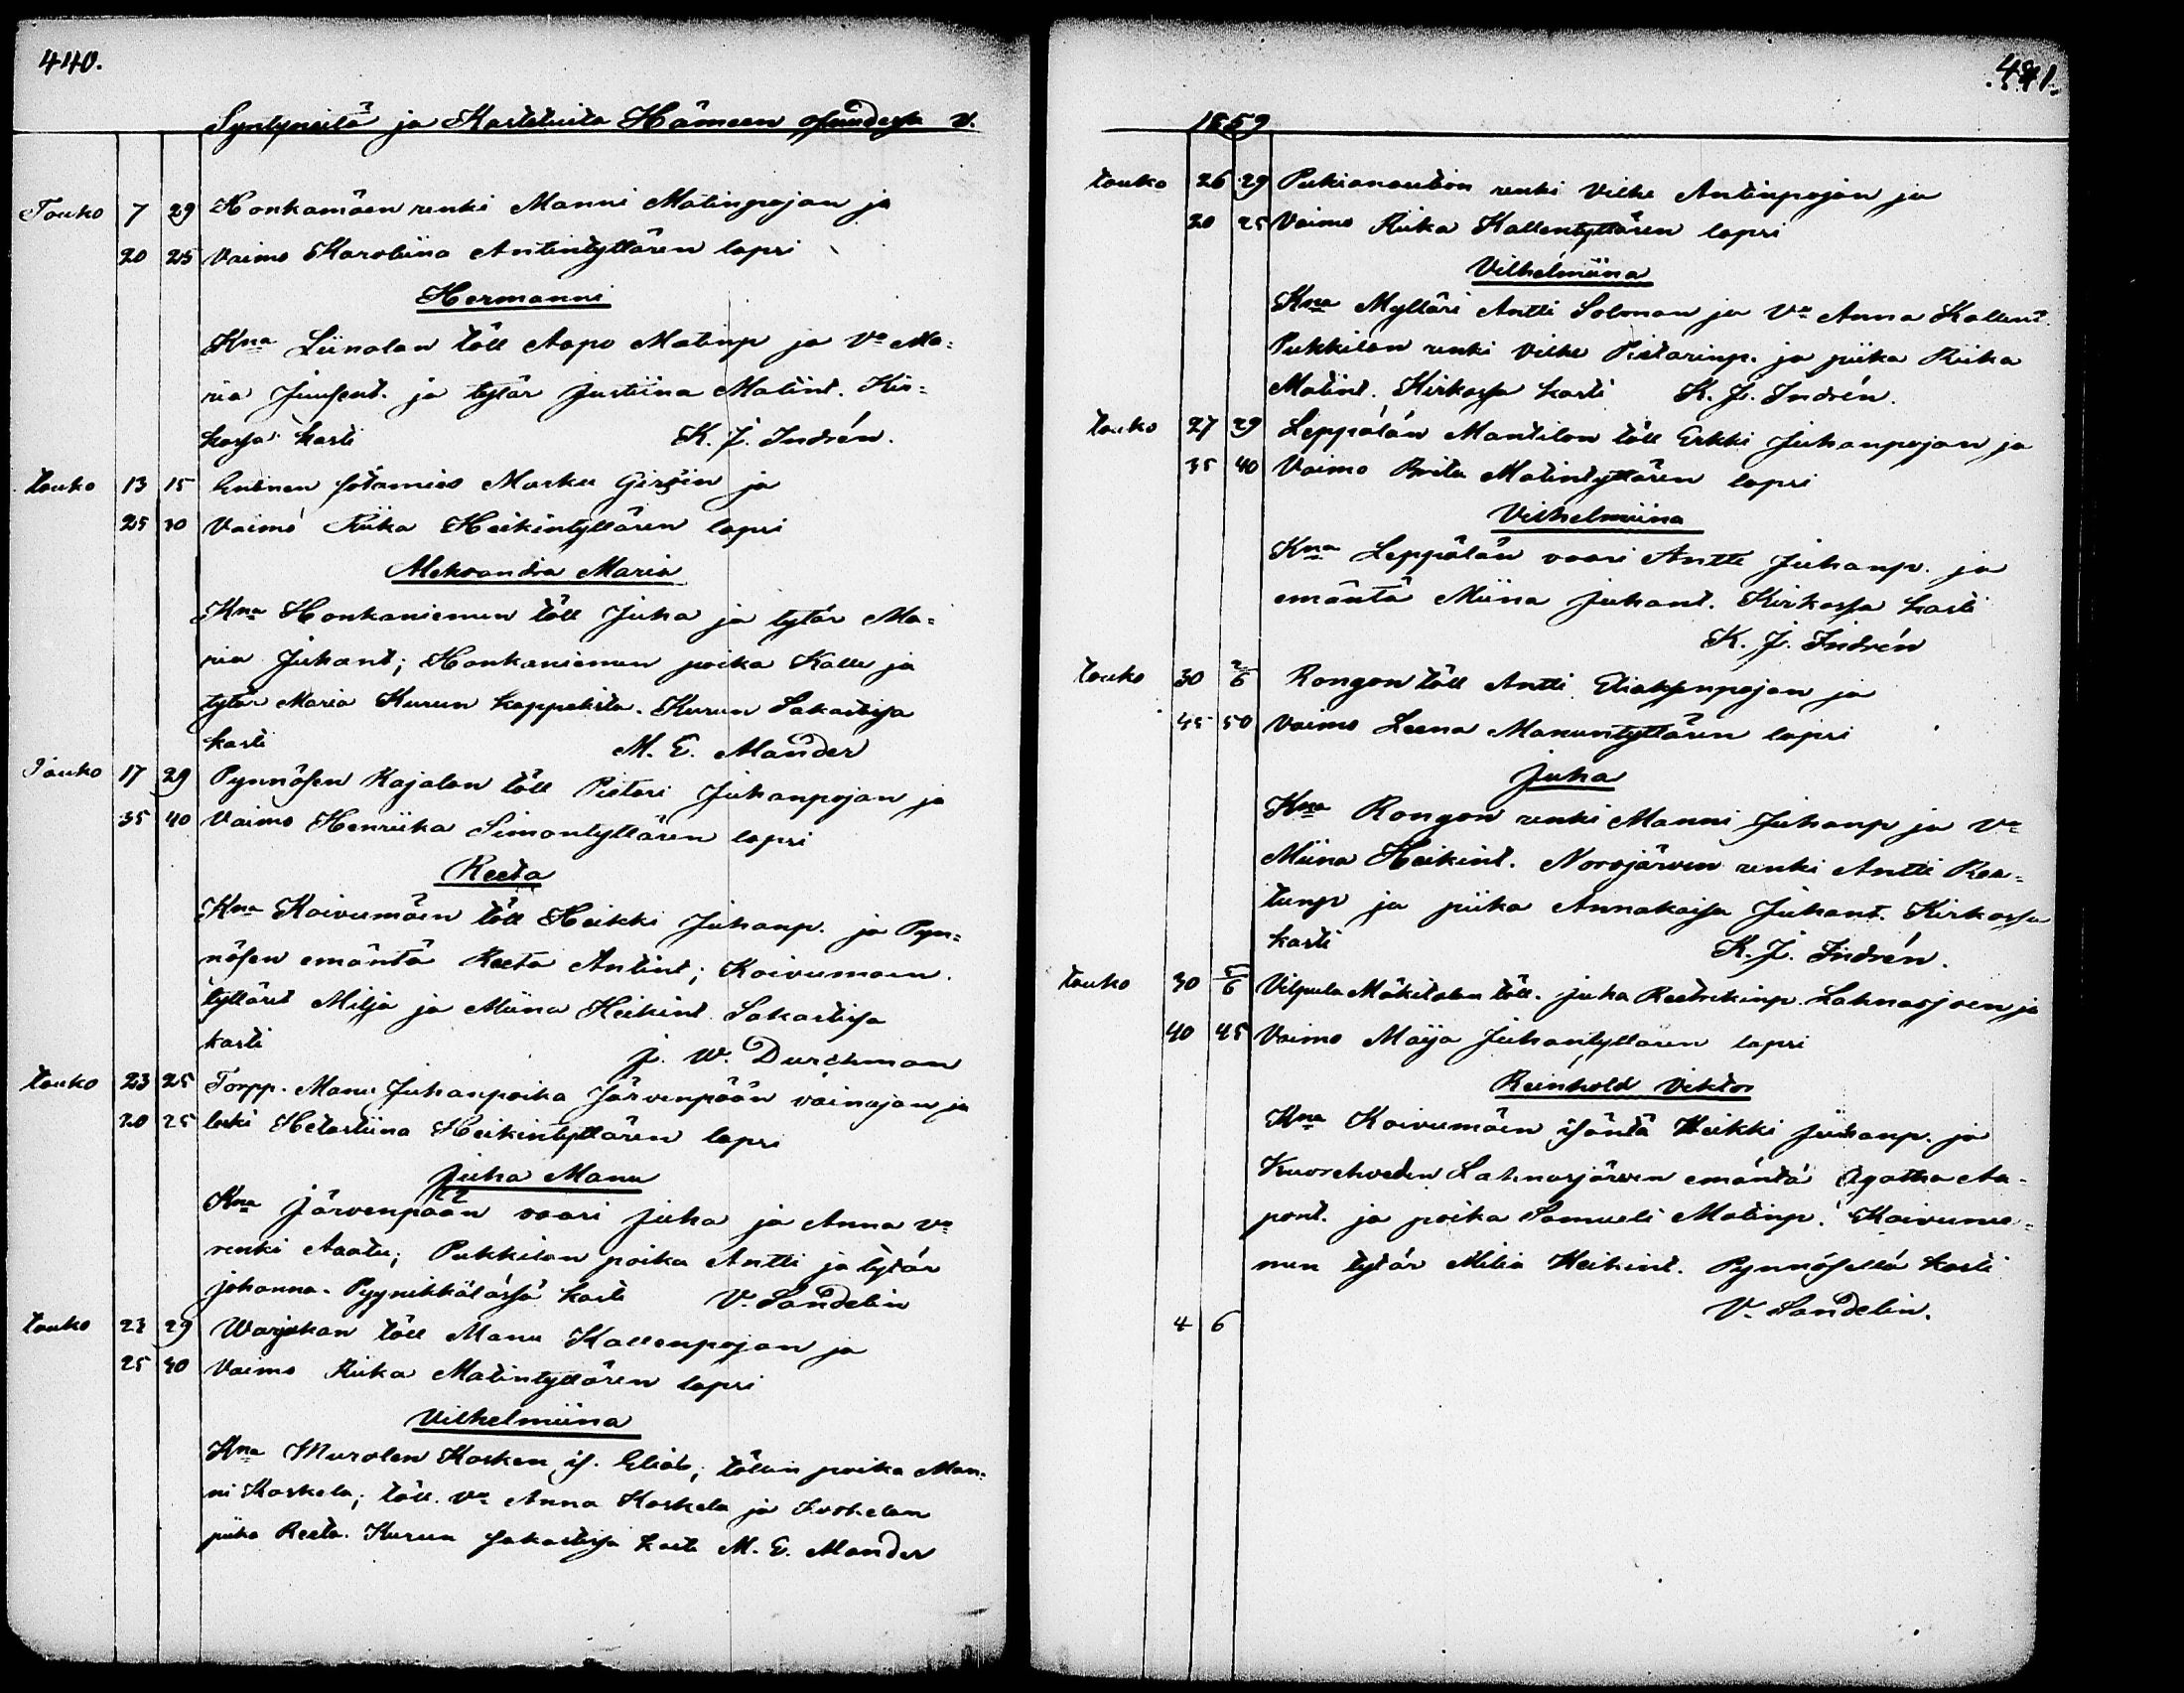 440.
Syntyneitä ja Kastetuita Hämeen osuudessa v.
Touko 7 29 Honkamäen renki Manni Matinpojan ja
20 25 Vaimo Karoliina Antintyttären lapsi
Hermanni
Kna Liinalan töll Aapo Matinp ja Va Ma=
ria Juusent. ja tytär Justiina Matint. Kir=
kossa kasti K. J. Indrén.
touko 13 15 Entinen sotamies Marku ja
25 30 Vaimo Riika Heikintyttären lapsi
Aleksandra Maria
Kna Honkaniemen töll Juha ja tytär Ma=
ria Juhant; Honkaniemen poika Kalle ja
tytär Maria Kurun kappelista. Kurun Sakastissa
kasti M. E. Mander
Touko 17 29 Pynnösen Rajalan töll Pietari Juhanpojan ja
35 40 Vaimo Henriika Simontyttären lapsi
Reeta
Kna Koivumäen töll Heikki Juhanp. ja Pyn=
nösen emäntä Reeta Antint; Koivumäen
tyttäret Milja ja Miina Heikint Sakastissa
kasti J. W. Durchman
touko 23 25 Torpp. Manu Juhanpoika Järvenpään vainajan ja
20 25 leski Hetastiina Heikintyttären lapsi
Juha Manu
Kna Järvenpään vaari Juha ja Anna va
renki Aaatu; Pukkilan poika Antti ja tytär
Johanna. Pyynikkälässä kasti V. Sandelin
touko 23 29 Warjokan töll Manu Kallenpojan ja
25 30 Vaimo Riika Matintyttären lapsi
Vilhelmiina
Kna Murolen Kosken is. Elias; töllin poika Man=
ni Koskela; töll. va Anna Koskela ja
piika Reeta. Kurun sakastissa kasti M. E. Mander
441.
1859
touko 26 29 renki Vilhe Antinpojan ja
20 25 Vaimo Riika Kallentyttären lapsi
Vilhelmiina
Kna Mylläri Antti Soloman ja Va Anna Kallent.
Pukkilan renki Vilhe Pietarinp. ja piika Riika
Matint. Kirkossa kasti K. J. Indrén.
touko 27 29 Leppälän Mantilan töll Erkki Juhanpojan ja
35 40 Vaimo Brita Matintyttären lapsi
Vilhelmiina
Kna Leppälän vaari Antti Juhanp. ja
emäntä Miina Juhant. Kirkossa kasti
K. J. Indrén
touko 30 2/6 Rongon töll Antti ja
45 50 Vaimo Leena Manuntyttären lapsi
Juha
Kna Rongon renki Manni Juhanp ja Va
Miina Heikint. Norojärven renki Antti Rea=
tunp ja piika Annakaisa Juhant. Kirkossa
kasti K. J. Indrén.
touko 30 5/6 Vilpula Mäkitalon töll. Juha Reetrikinp. Lahnasjoen ja
40 45 Vaimo Maija Juhantyttären lapsi
Reinhold Viktor
Kna Koivumäen isäntä Heikki Juhanp. ja
Kuorehveden Lahnasjärven emäntä Agatha Aa=
pont. ja poika Samueli Matinp. Koivunie=
men tytär Milia Heikint. Pynnösellä kasti
V. Sandelin.
4 6